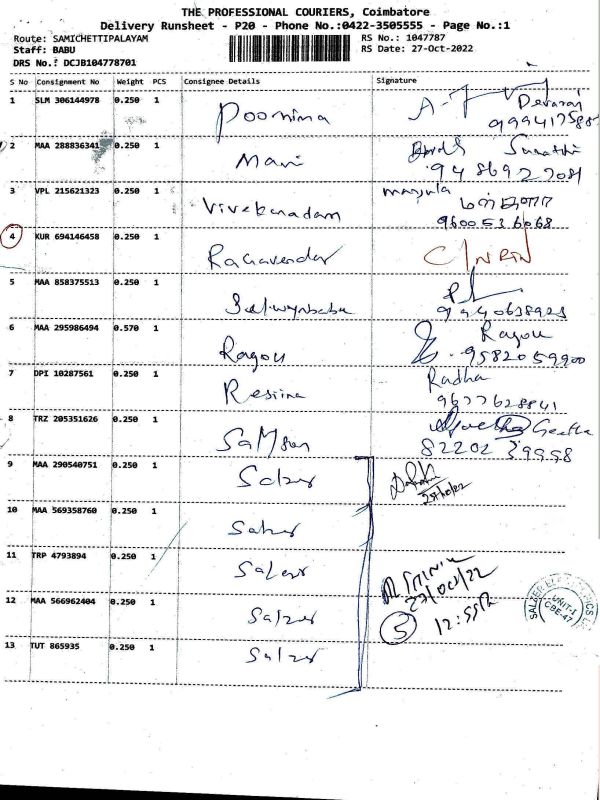 THE PROFESSIONAL COURIERS, Coimbatore
Delivery Runsheet - P20 - Phone No.:0422-3505555 - Page No.:1
Route: SAMICHETTIPALAYAM RS No.: 1047787
Staff: BABU RS Date: 27-Oct-2022
DRS No.: DCJB104778701
S No Consignment No Weight PCS Consignee Details Signature
1 SLM 306144978 0.250 1 Poornima Devaraj
2 MAA 288836341 0.250 1 Mani
9486927081
3 VPL 215621323 0.250 1 Vivekanadam manjula
9600536068
4 KUR 694146458 0.250 1 Ragavendar C/NRIN
5 MAA 858375513 0.250 1 Selwynbabu
6 MAA 295986494 0.570 1 Ragou Ragou
9582059900
7 DPI 10287561 0.250 1 Resiina Radha
9677628841
8 TRZ 205351626 0.250 1 Samson Geetha
82202 39998
9 MAA 290540751 0.250 1 Salzer
27/10/22
10 MAA 569358760 0.250 1 Salzer
11 TRP 4793894 0.250 1 Salzer
27/10/22
12 MAA 566962404 0.250 1 Salzer
5 12:55
SALZER ELECTRONICS UNIT-I CBE-47
13 TUT 865935 0.250 1 Salzer